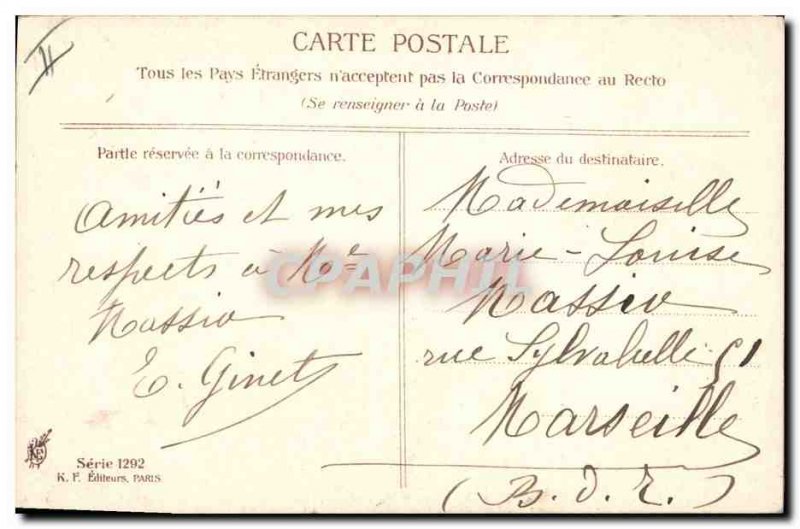 CARTE POSTALE
Tous les Pays Étrangers n'acceptent pas la Correspondance au Recto
(Se renseigner à la Poste)
Partie réservée à la correspondance.
Adresse du destinataire.
Amitiés et mes
respects à Mme
Massio
E. Ginet
Mademoiselle
Marie-Louise
Massio
rue Sylvabelle 51
Marseille
(B. d. R.)
Série 1292
K. F. Éditeurs, PARIS
CPAPHIL